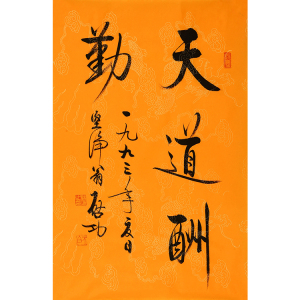 天道酬
勤
一九九三年夏日
坚净翁启功